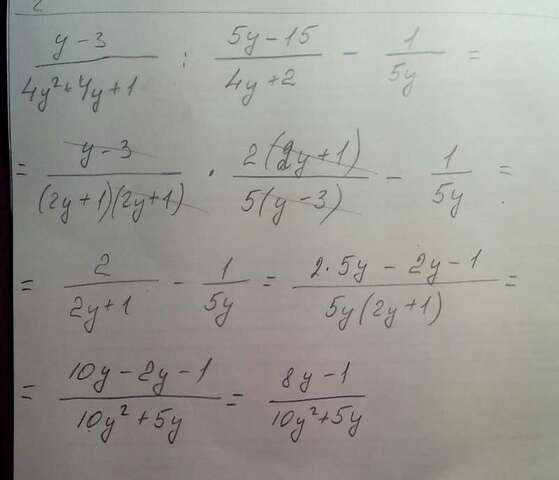 (y-3)/(4y²+4y+1) : (5y-15)/(4y+2) - 1/(5y) =
= (y-3)/((2y+1)(2y+1)) · (2(2y+1))/(5(y-3)) - 1/(5y) =
= 2/(2y+1) - 1/(5y) = (2·5y-2y-1)/(5y(2y+1)) =
= (10y-2y-1)/(10y²+5y) = (8y-1)/(10y²+5y)